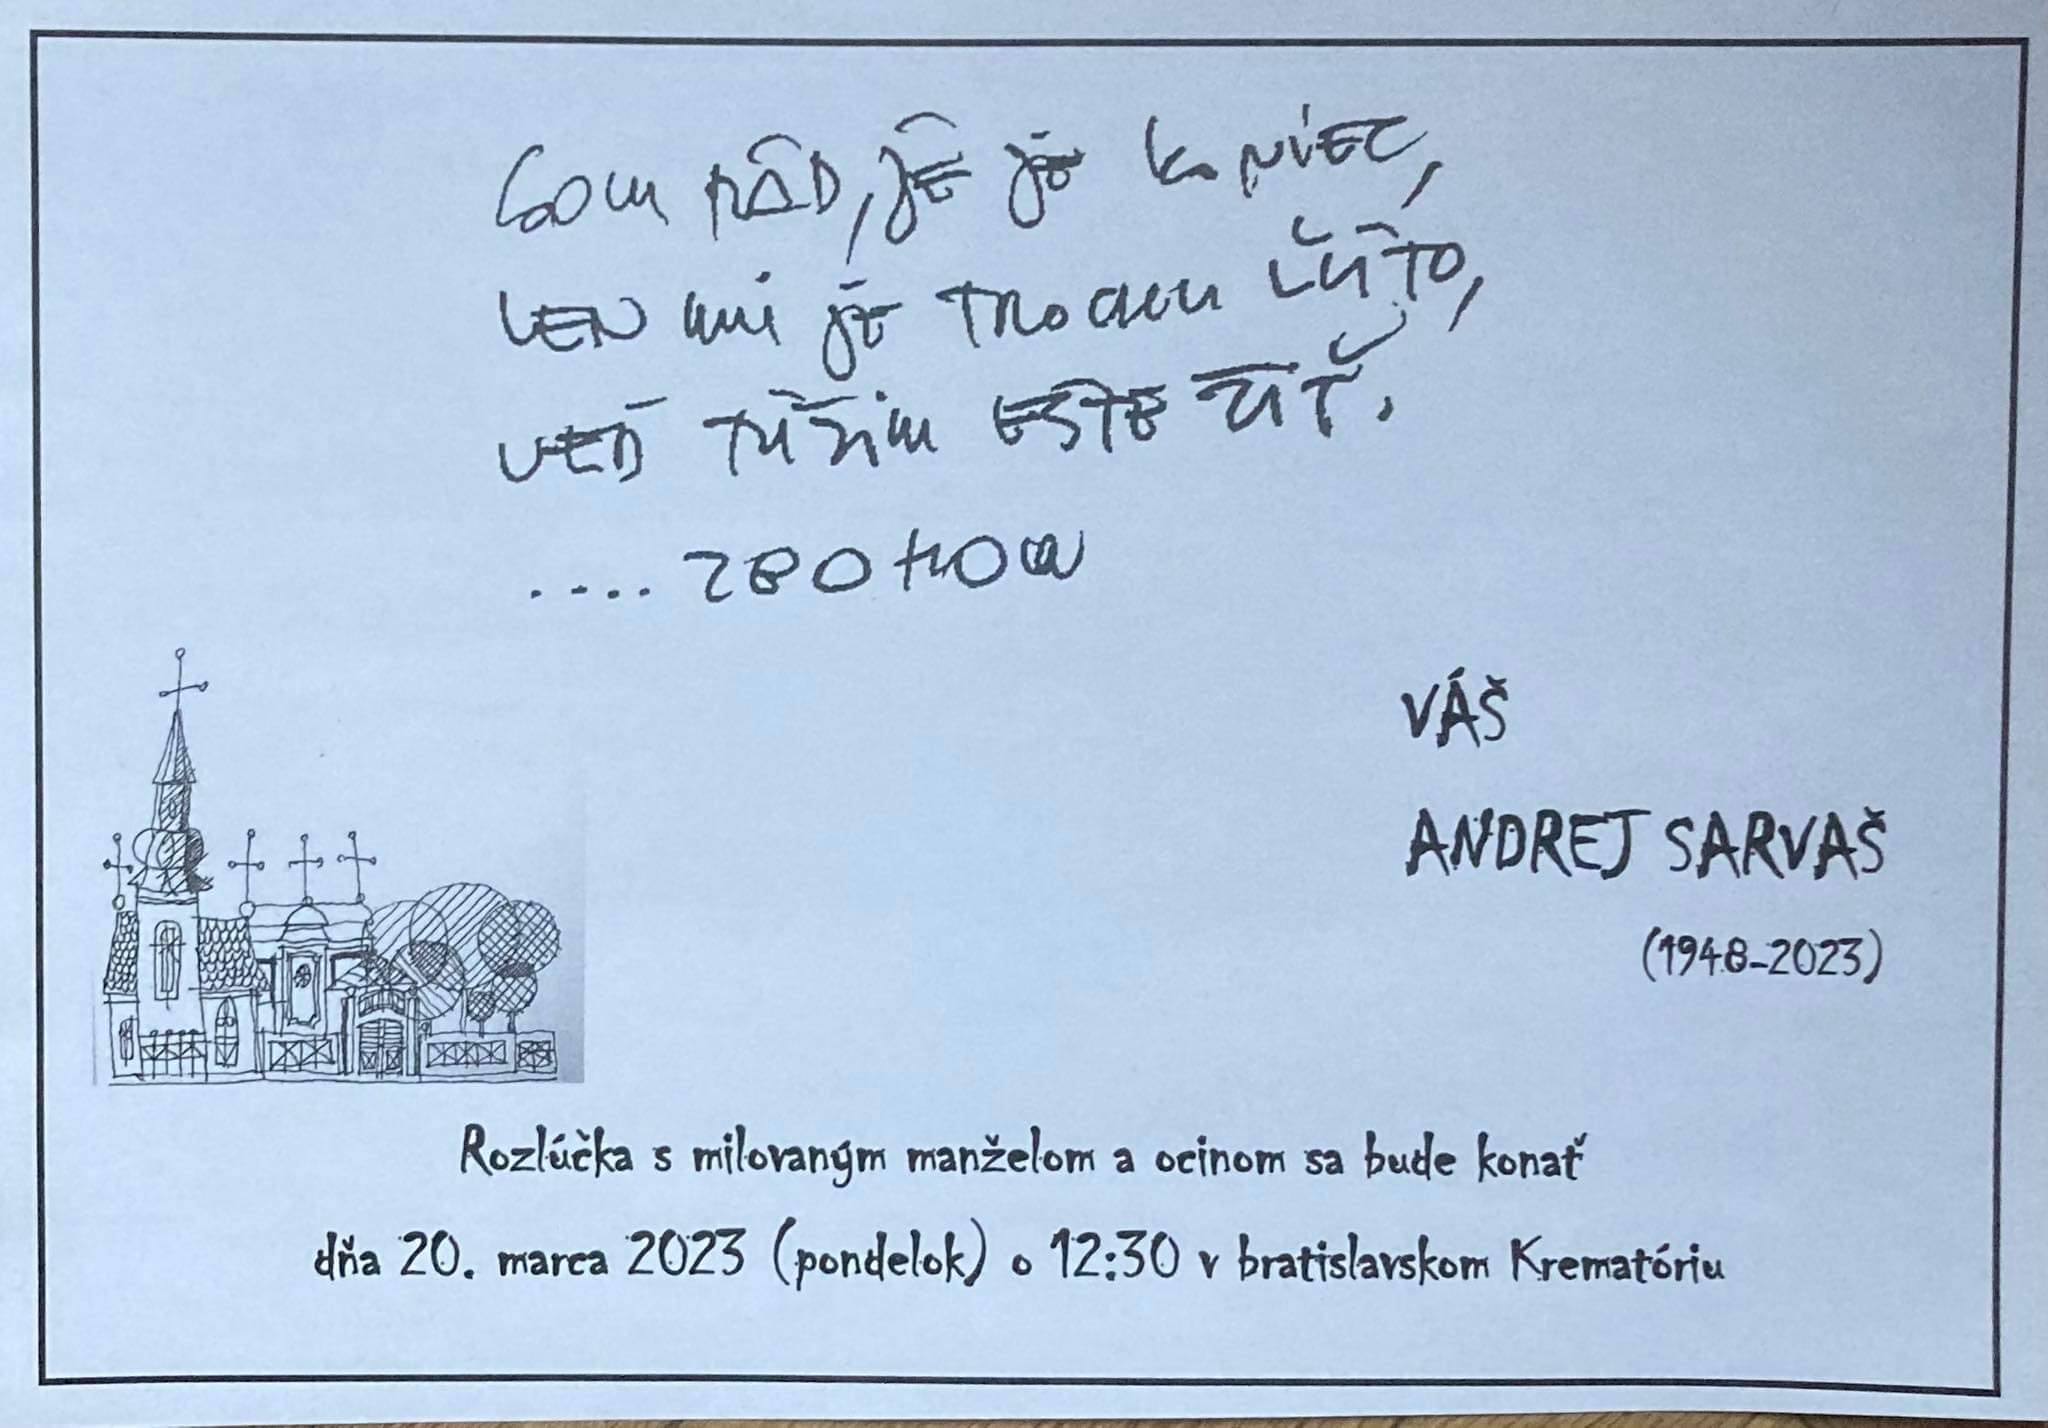 Som RÁD, ŽE JE KONIEC,
LEN mi JE TROCHU ĽÚTO,
VEĎ TÚŽIM EŠTE ŽIŤ.
.... ZBOHOM
VÁŠ
ANDREJ SARVAŠ
(1948-2023)
Rozlúčka s milovaným manželom a ocinom sa bude konať
dňa 20. marca 2023 (pondelok) o 12:30 v bratislavskom Krematóriu